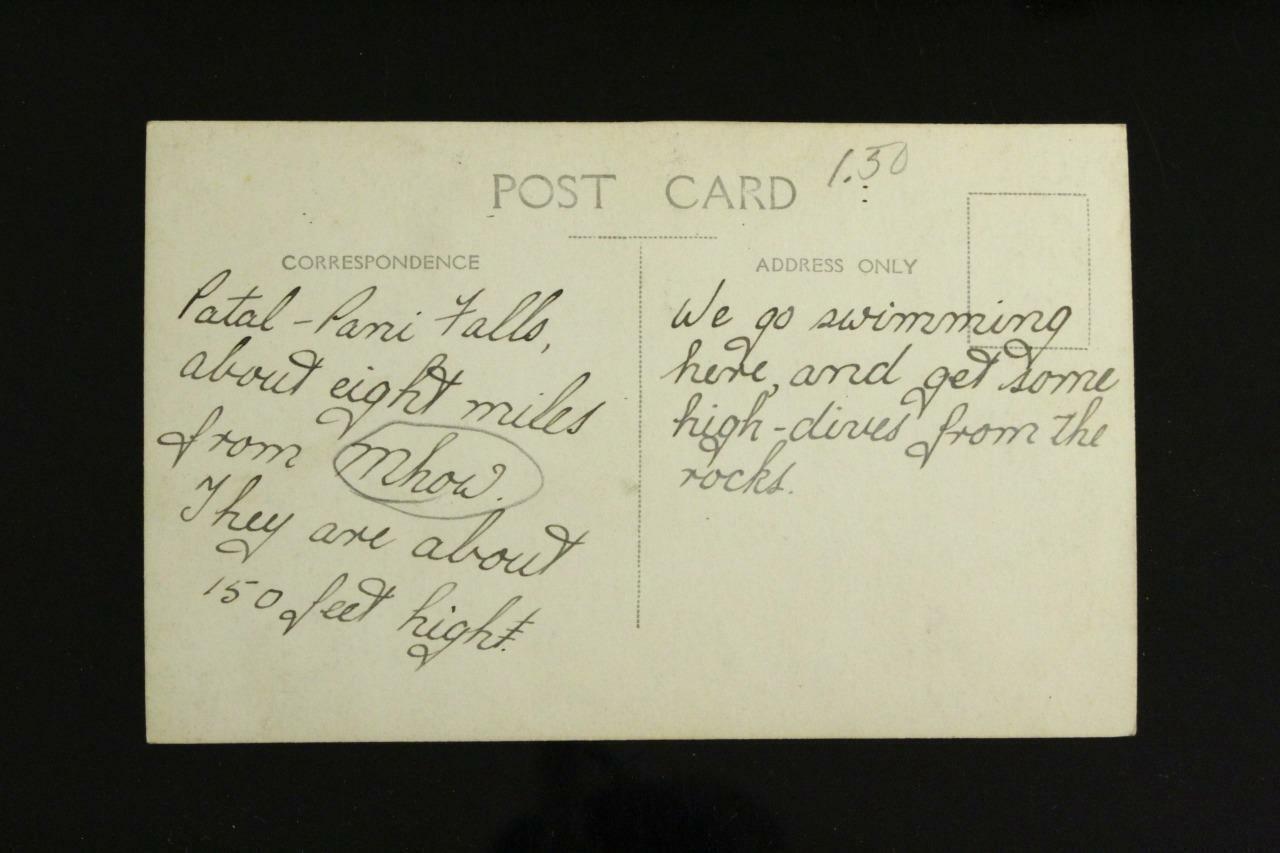 POST CARD
1.50
CORRESPONDENCE
Patal-Pani Falls,
about eight miles
from Mhow.
They are about
150 feet hight.
ADDRESS ONLY
We go swimming
here, and get some
high-dives from the
rocks.